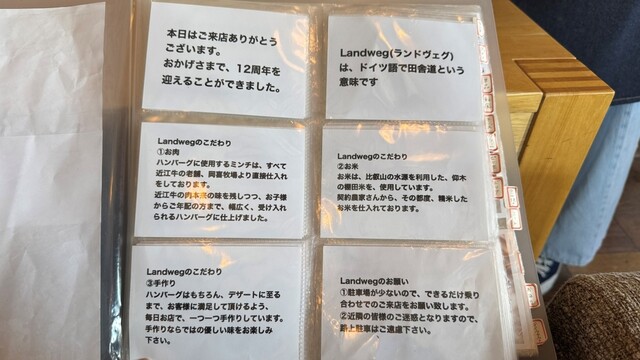 本日はご来店ありがとう
ございます。
おかげさまで、12周年を
迎えることができました。
Landweg(ランドヴェグ)
は、ドイツ語で田舎道という
意味です
Landwegのこだわり
①お肉
ハンバーグに使用するミンチは、すべて
近江牛の老舗、岡喜牧場より直接仕入れ
をしております。
近江牛の肉本来の味を残しつつ、お子様
からご年配の方まで、幅広く、受け入れ
られるハンバーグに仕上げました。
Landwegのこだわり
②お米
お米は、比叡山の水源を利用した、仰木
の棚田米を、使用しています。
契約農家さんから、その都度、精米した
お米を仕入れております。
Landwegのこだわり
③手作り
ハンバーグはもちろん、デザートに至る
まで、お客様に満足して頂けるよう、
毎日お店で、一つ一つ手作りしています。
手作りならではの優しい味をお楽しみ
下さい。
Landwegのお願い
①駐車場が少ないので、できるだけ乗り
合わせてのご来店をお願い致します。
②近隣の皆様のご迷惑となりますので、
路上駐車はご遠慮下さい。